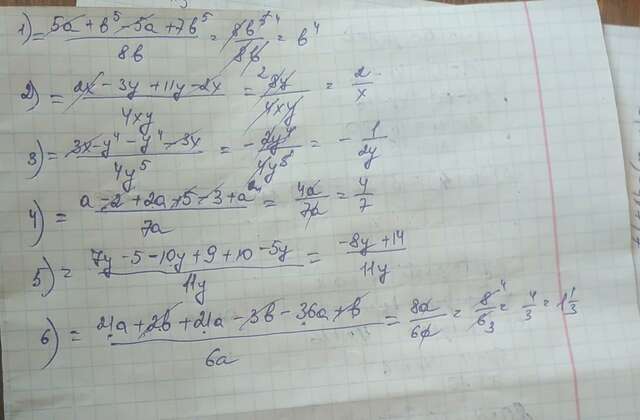 1) = 5a + b⁵ - 5a + 7b⁵ / 8b = 8b⁵ ⁴ / 8b = b⁴
2) = 2x - 3y + 11y - 2x / 4xy = ² 8y / 4xy = 2 / x
3) = 3x - y⁴ - y⁴ - 3x / 4y⁵ = - 2y⁴ / 4y⁵ = - 1 / 2y
4) = a - 2 + 2a + 5 - 3 + a / 7a = 4a / 7a = 4 / 7
5) = 7y - 5 - 10y + 9 + 10 - 5y / 11y = -8y + 14 / 11y
6) = 21a + 2b + 21a - 3b - 36a + b / 6a = 8a / 6a = 8 ⁴ / 6 ₃ = 4 / 3 = 1 1/3